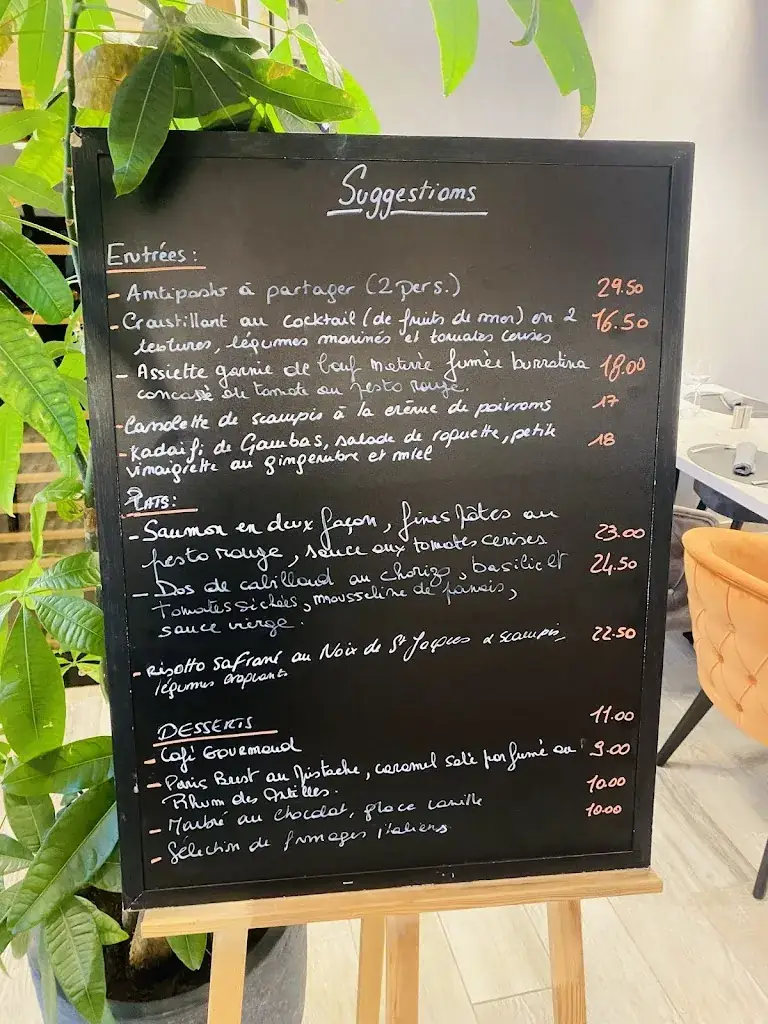 Suggestions
Entrées :
- Antipasto à partager (2 pers.) 29.50
- Croustillant au cocktail (de fruits de mer) en 2 16.50
textures, légumes marinés et tomates cerises
- Assiette garnie de bœuf maturée fumée burratina 18.00
concassé de tomate au pesto rouge.
- Cassolette de scampis à la crème de poivrons 17
- Kadaifi de Gambas, salade de roquette, petite 18
vinaigrette au gingembre et miel
PLATS :
- Saumon en deux façon, fines pâtes au
pesto rouge, sauce aux tomates cerises 23.00
- Dos de cabillaud au chorizo, basilic et 24.50
tomates séchées, mousseline de panais,
sauce vierge.
- Risotto safrané au Noix de St Jacques & scampis, 22.50
légumes croquants
DESSERTS 11.00
- Café Gourmand
- Paris Brest au Pistache, caramel salé parfumé au 9.00
Rhum des Antilles. 10.00
- Marbré au chocolat, glace vanille 10.00
- Sélection de fromages italiens